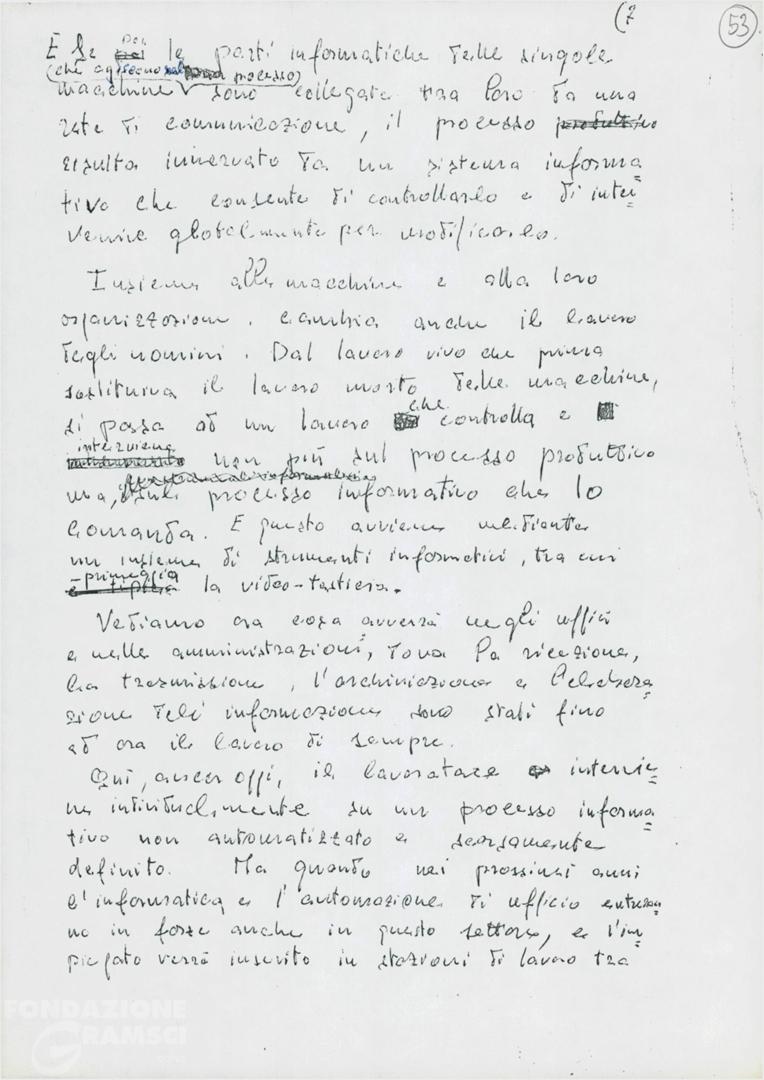 (7
53
E se poi le parti informatiche delle singole
(che agiscono sul processo)
macchine sono collegate tra loro da una
rete di comunicazione, il processo produttivo
risulta innervato da un sistema informa=
tivo che consente di controllarlo e di inter=
venire globalmente per modificarlo.
Insieme alle macchine e alla loro
organizzazione, cambia anche il lavoro
degli uomini. Dal lavoro vivo che prima
sostituiva il lavoro morto delle macchine,
si passa ad un lavoro che controlla e
interviene non più sul processo produttivo
ma, sul processo informativo che lo
comanda. E questo avviene mediante
un insieme di strumenti informatici, tra cui
primeggia la video-tastiera.
Vediamo ora cosa avverrà negli uffici
e nelle amministrazioni, dove la ricezione,
la trasmissione, l'archiviazione e l'elabora=
zione delle informazione sono stati fino
ad ora il lavoro di sempre.
Qui, ancor oggi, il lavoratore intervie=
ne individualmente su un processo informa=
tivo non automatizzato e scarsamente
definito. Ma quando nei prossimi anni
l'informatica e l'automazione di ufficio entreran=
no in forze anche in questo settore, e l'im=
piegato verrà inserito in stazioni di lavoro tra
FONDAZIONE
GRAMSCI